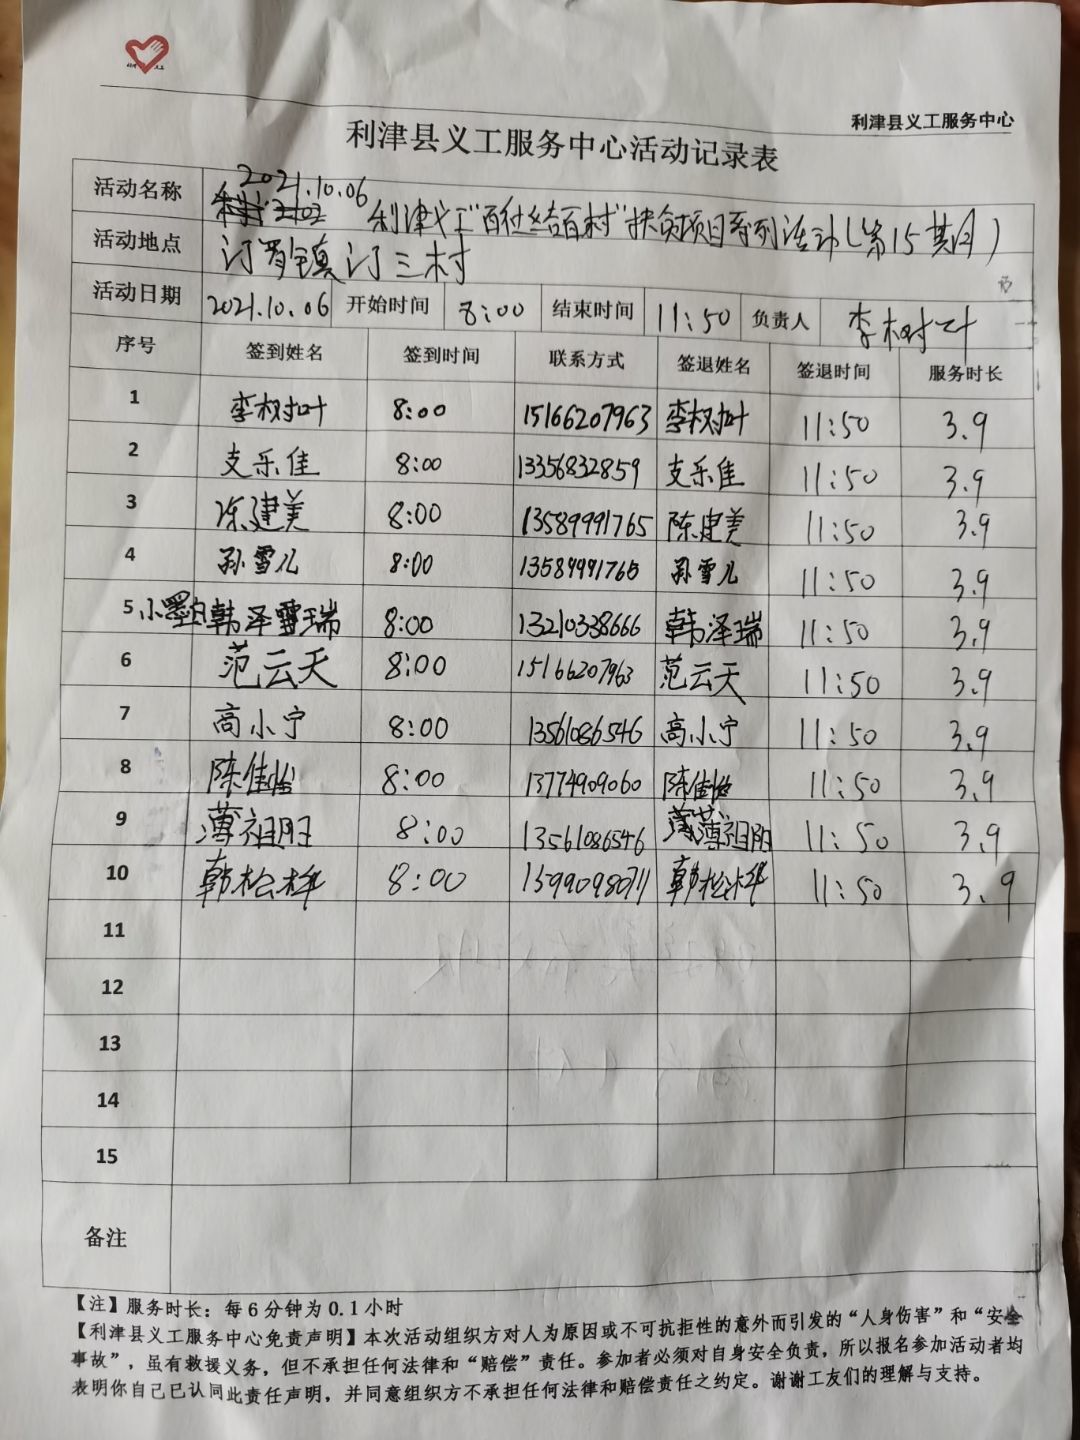 利津县义工服务中心
利津县义工服务中心活动记录表
活动名称 2021.10.06 利津义工"百社结百村"扶贫项目系列活动(第15期)
活动地点 汀罗镇汀三村
活动日期 2021.10.06 开始时间 8:00 结束时间 11:50 负责人 李树叶
序号 签到姓名 签到时间 联系方式 签退姓名 签退时间 服务时长
1 李树叶 8:00 15166207963 李树叶 11:50 3.9
2 支乐佳 8:00 13356832859 支乐佳 11:50 3.9
3 陈建美 8:00 13589991765 陈建美 11:50 3.9
4 孙雪儿 8:00 13589991765 孙雪儿 11:50 3.9
5 小墨白韩泽瑞 8:00 13210338666 韩泽瑞 11:50 3.9
6 范云天 8:00 15166207963 范云天 11:50 3.9
7 高小宁 8:00 13561086546 高小宁 11:50 3.9
8 陈佳怡 8:00 13774909060 陈佳怡 11:50 3.9
9 薄祖阳 8:00 13561086546 薄祖阳 11:50 3.9
10 韩松桦 8:00 韩松桦 11:50 3.9
11
12
13
14
15
备注
【注】服务时长：每6分钟为0.1小时
【利津县义工服务中心免责声明】本次活动组织方对人为原因或不可抗拒性的意外而引发的“人身伤害”和“安全
事故”，虽有救援义务，但不承担任何法律和“赔偿”责任。参加者必须对自身安全负责，所以报名参加活动者均
表明你自己已认同此责任声明，并同意组织方不承担任何法律和赔偿责任之约定。谢谢工友们的理解与支持。